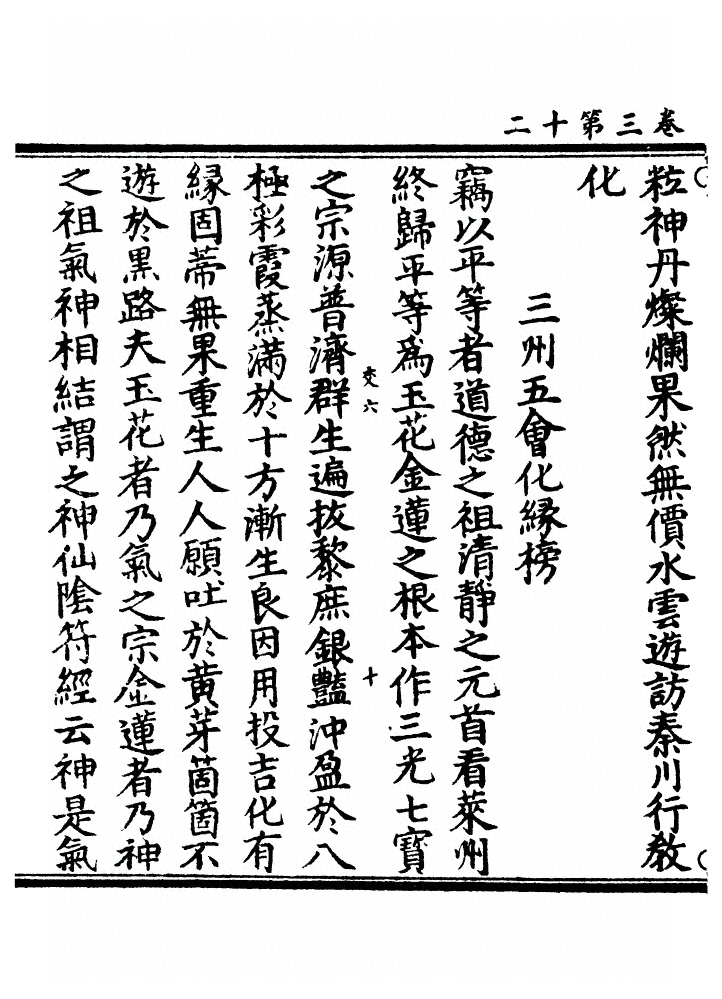 卷三第十二
粒神丹燦爛果然無價水雲遊訪秦川行教
化
三州五會化緣榜
竊以平等者道德之祖清靜之元首看萊州
終歸平等為玉花金蓮之根本作三光七寳
之宗源普濟群生遍拔黎庶銀豔沖盈於八
交六
十
極彩霞蒸滿於十方漸生良因用投吉化有
緣固蒂無果重生人人願吐於黄芽箇箇不
遊於黒路夫玉花者乃氣之宗金蓮者乃神
之祖氣神相結謂之神仙陰符經云神是氣